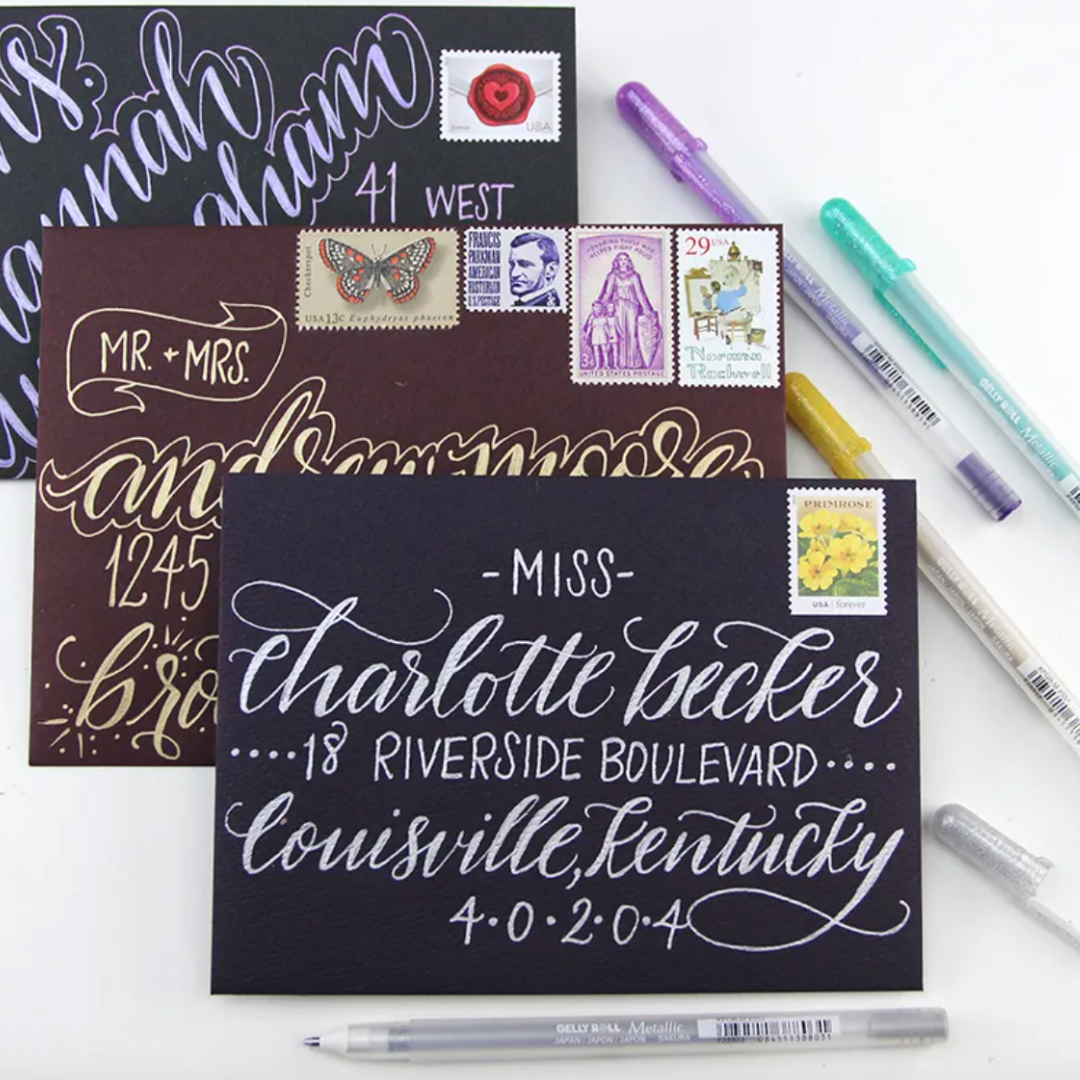 USA
41 WEST
Checkerspot
USA 13c Euphydryas phaeton
FRANCIS
PARKMAN
AMERICAN
HISTORIAN
U.S. POSTAGE
HONORING THOSE WHO
HELPED FIGHT POLIO
3¢
UNITED STATES POSTAGE
29 USA
Norman
Rockwell
MR. + MRS.
andrew moore
1245
PRIMROSE
USA forever
-MISS-
charlotte becker
····18 RIVERSIDE BOULEVARD····
Louisville, Kentucky
4·0·2·0·4
Metallic
GELLY ROLL Metallic
GELLY ROLL
GELLY ROLL Metallic
JAPAN / JAPON / JAPÓN SAKURA
084511388031